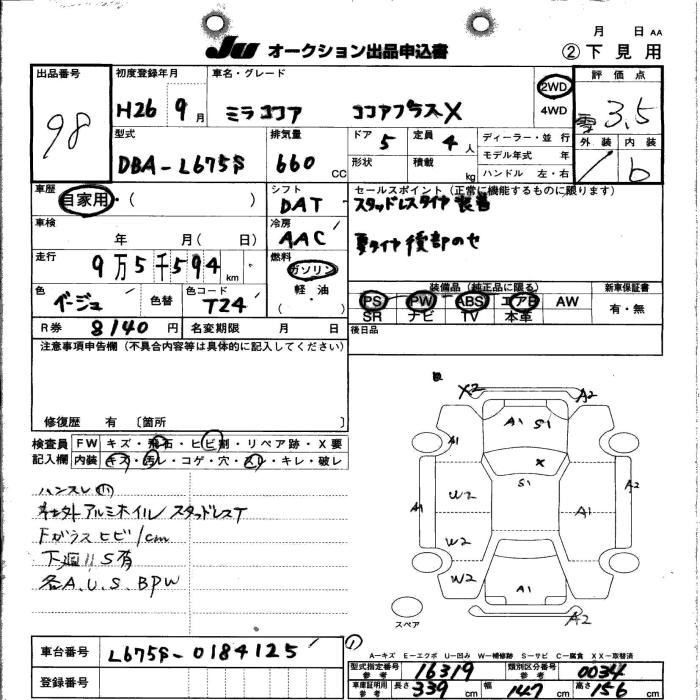 月 日 AA
JU オークション出品申込書 ② 下見用
出品番号 98
初度登録年月 H26 9月
車名・グレード ミラココア ココアプラスX
2WD
4WD
評価点 3.5
外装 内装 b
型式 DBA-L675S
排気量 660 CC
ドア 5
定員 4 人
形状
積載 kg
ディーラー・並行
モデル年式 年
ハンドル 左・右
車歴 自家用・( )
シフト DAT
セールスポイント (正常に機能するものに限ります)
スタッドレスタイヤ装着
夏タイヤ後部のせ
車検 年 月( 日)
冷房 AAC
走行 9万5千594 km
燃料 ガソリン
軽油
( )
色 ベージュ 色替
色コード T24
装備品 (純正品に限る)
PS PW ABS エアB AW
SR ナビ TV 本革
新車保証書
有・無
R券 8140 円 名変期限 月 日
後日品
注意事項申告欄 (不具合内容等は具体的に記入してください)
修復歴 有 〔箇所 〕
検査員 FW キズ・飛石・ヒビ割・リペア跡・X要
記入欄 内装 キズ・汚レ・コゲ・穴・スレ・キレ・破レ
ハンスレ
社外アルミホイル スタッドレスT
Fガラスヒビ1cm
下廻リS有
各A.U.S.BPW
X2 A2
A1 S1
A1 X
S1
A1 W2 A1 A2
W2
W2
A1
A2
スペア
車台番号 L675S-0184125
登録番号
A-キズ E-エクボ U-凹み W-補修跡 S-サビ C-腐食 XX-取替済
型式指定番号 参考 16319 類別区分番号 参考 0034
車庫証明用 参考 長さ 339 cm 幅 147 cm 高さ 154 cm